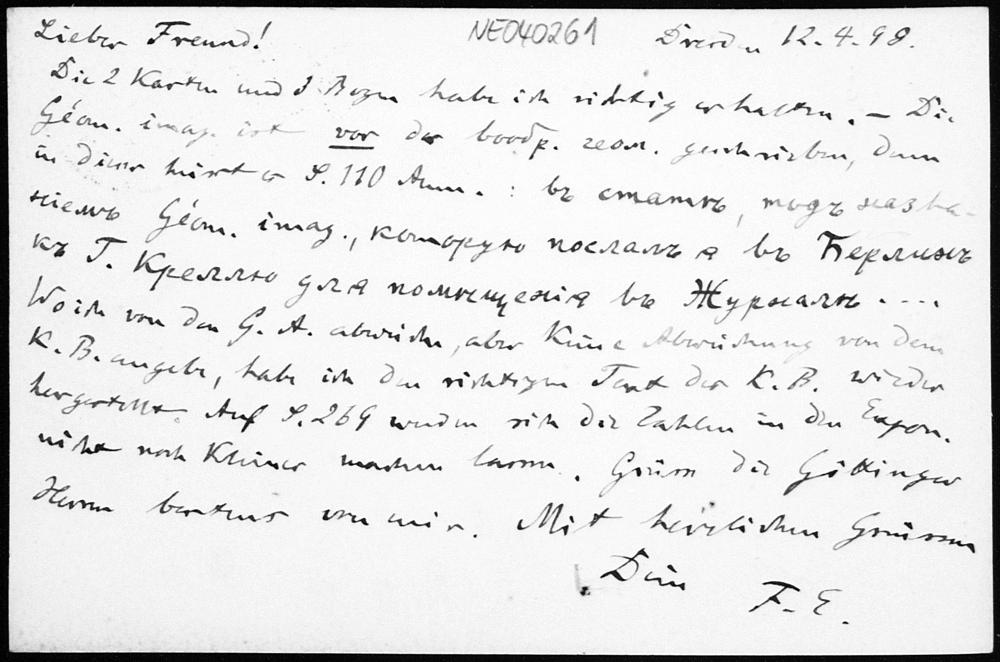 Lieber Freund! NE040261 Dresden 12.4.98.
Die 2 Karten und 3 Bogen habe ich richtig erhalten. — Die
Géom. imag. ist vor der вообр. геом. geschrieben, denn
in dieser heisst es S. 110 Anm.: въ статьѣ, подъ назва-
ніемъ Géom. imag., которую послалъ я въ Берлинъ
къ Г. Креллю для помѣщенія въ Журналѣ ....
Wo ich von den G. A. abweiche, aber keine Abweichung von dem
K. B. angebe, habe ich den richtigen Text der K. B. wieder
hergestellt. Auf S. 269 werden sich die Zahlen in den Expon.
nicht noch kleiner machen lassen. Grüsse die Göttinger
Herren bestens von mir. Mit herzlichen Grüssen
Dein
F. E.